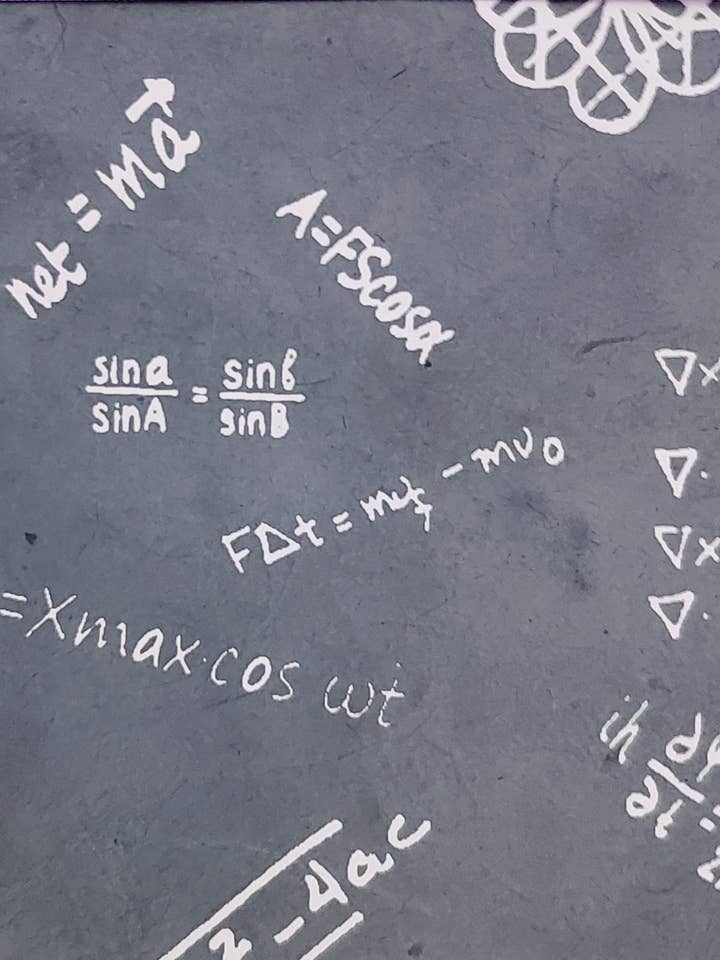 net = ma⃗
A=FScosα
sina/sinA = sinb/sinB
F∆t = mvₜ - mv₀
=Xmax·cos ωt
∇×
∇·
∇×
∇·
iħ ∂
∂t
2 - 4ac